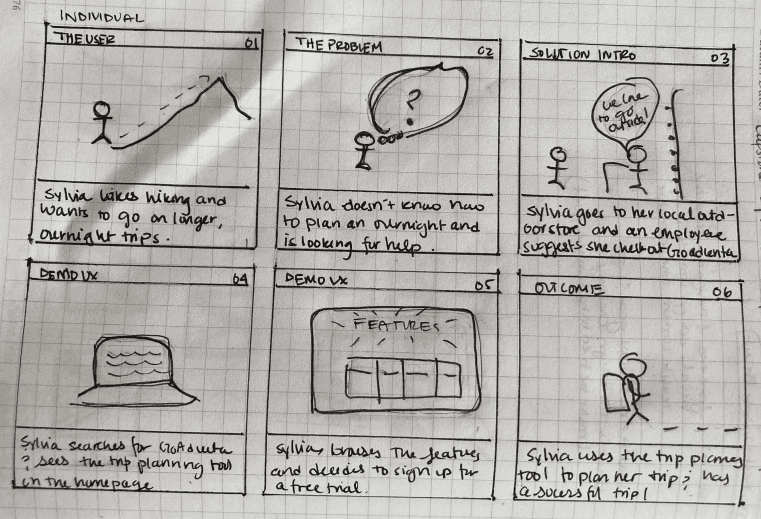 INDIVIDUAL
THE USER 01
Sylvia likes hiking and
wants to go on longer,
overnight trips.
THE PROBLEM 02
?
Sylvia doesn't know how
to plan an overnight and
is looking for help.
SOLUTION INTRO 03
to go
outside!
Sylvia goes to her local outd-
oor store and an employee
suggests she check out
DEMO UX 04
Sylvia searches for
& sees the trip planning tool
on the homepage
DEMO UX 05
FEATURES
Sylvia browses the features
and decides to sign up for
a free trial.
OUTCOME 06
Sylvia uses the trip planning
tool to plan her trip & has
a sucessful trip!